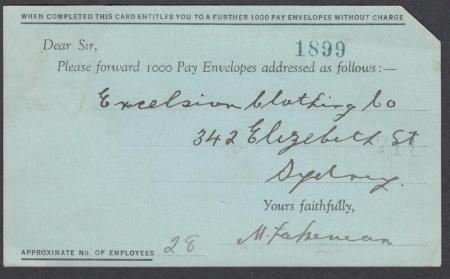 WHEN COMPLETED THIS CARD ENTITLES YOU TO A FURTHER 1000 PAY ENVELOPES WITHOUT CHARGE
Dear Sir,
1899
Please forward 1000 Pay Envelopes addressed as follows:—
Excelsior Clothing Co
342 Elizabeth St
Sydney.
Yours faithfully,
M.
APPROXIMATE No. OF EMPLOYEES 28